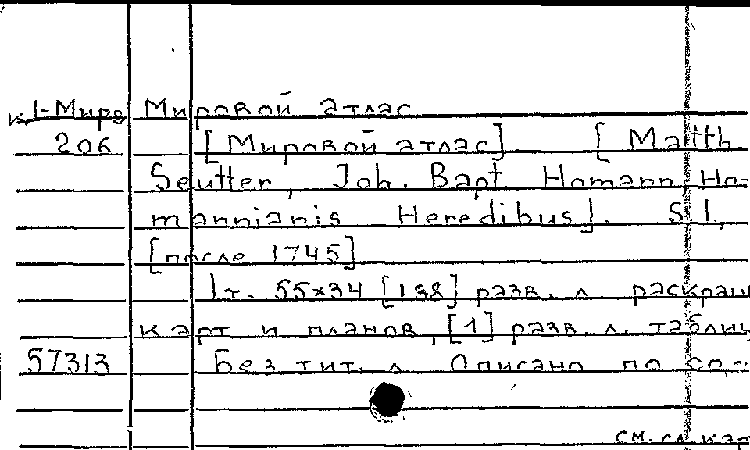 к 1-Миро Мировой атлас
206 [Мировой атлас] [Matth.
Seutter, Joh. Bapt Homann, Ho-
mannianis Heredibus]. S.l.,
[после 1745]
1 т. 55×34 [138] разв. л. раскраш
карт и планов, [1] разв. л. таблиц
57313 Без тит. л. Описано по
см. сл. кар